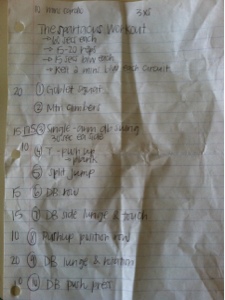 The spartacus Workout
→ 60 sec each
→ 15-20 reps
→ 15 sec btw each
→ Rest 2 mins btw each circuit
20 ① Goblet squat
② Mtn climbers
③ Single-arm db swing
10 ④ T-pushup
⑤ Split jump
15 ⑥ DB row
15 ⑦ DB side lunge & touch
10 ⑧ Pushup position row
20 ⑨ DB lunge & rotation
10 ⑩ DB push press